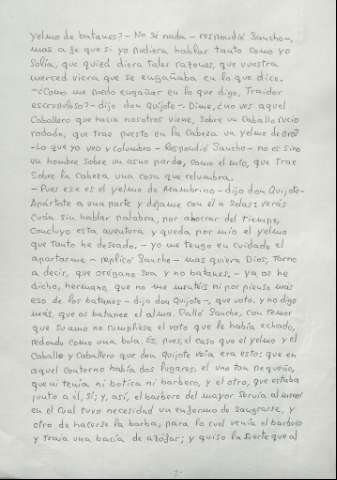 yelmo de batanes? - No sé nada - respondió Sancho -,
mas a fe que si yo pudiera hablar tanto como yo
solía, que quizá diera tales razones, que vuestra
merced viera que se engañaba en lo que dice.
- ¿Cómo me puedo engañar en lo que digo, Traidor
escrupuloso? - dijo don Quijote -. Dime, ¿no ves aquel
Caballero que hacia nosotros viene, sobre un caballo rucio
rodado, que trae puesto en la cabeza un yelmo de oro?
- Lo que yo veo y columbro - respondió Sancho - no es sino
un hombre sobre un asno pardo, como el mío, que trae
sobre la cabeza una cosa que relumbra.
- Pues ese es el yelmo de Mambrino - dijo don Quijote -
Apártate a una parte y déjame con él a solas: verás
cuán sin hablar palabra, por ahorrar del tiempo,
concluyo esta aventura y queda por mío el yelmo
que tanto he deseado. - yo me tengo en cuidado el
apartarme - replicó Sancho - mas quiera Dios, torno
a decir, que orégano sea y no batanes. - ya os he
dicho, hermano, que no me mentéis ni por pienso más
eso de los batanes - dijo don Quijote -, que voto, y no digo
más, que os batanee el alma. Calló Sancho, con temor
que su amo no cumpliese el voto que le había echado,
redondo como una bola. Es, pues, el caso que el yelmo y el
Caballo y Caballero que don Quijote veía era esto: que en
aquel contorno había dos lugares, el uno tan pequeño,
que ni tenía ni botica ni barbero, y el otro, que estaba
junto a él, sí; y, así, el barbero del mayor servía al menor
en el cual tuvo necesidad un enfermo de sangrarse, y
otro de hacerse la barba, para lo cual venía el barbero
y traía una bacía de azófar; y quiso la suerte que al